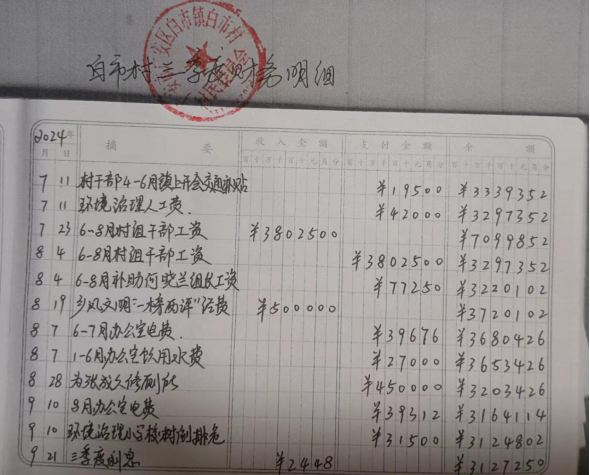 白市村三季度财务明细
安区白市镇白市村
2024年
月 日 摘 要 收入金额 支付金额 余额
百十万千百十元角分 百十万千百十元角分 百十万千百十元角分
7 11 村干部4-6月镇上开会交通补贴 ¥19500 ¥3339352
7 11 环境治理人工费. ¥42000 ¥3297352
7 23 6-8月村组干部工资 ¥3802500 ¥7099852
8 4 6-8月村组干部工资 ¥3802500 ¥3297352
8 4 6-8月补助何晓兰组长工资 ¥77250 ¥3220102
8 19 乡风文明"一榜两评"经费 ¥500000 ¥3720102
8 7 6-7月办公室电费. ¥39676 ¥3680426
8 7 1-6月办公室饮用水费 ¥27000 ¥3653426
8 28 为张成久修厕所 ¥450000 ¥3203426
9 10 8月办公室电费 ¥39312 ¥3164114
9 10 环境治理小学校树倒排危 ¥31500 ¥3124802
9 21 三季度利息 ¥2448 ¥3127250